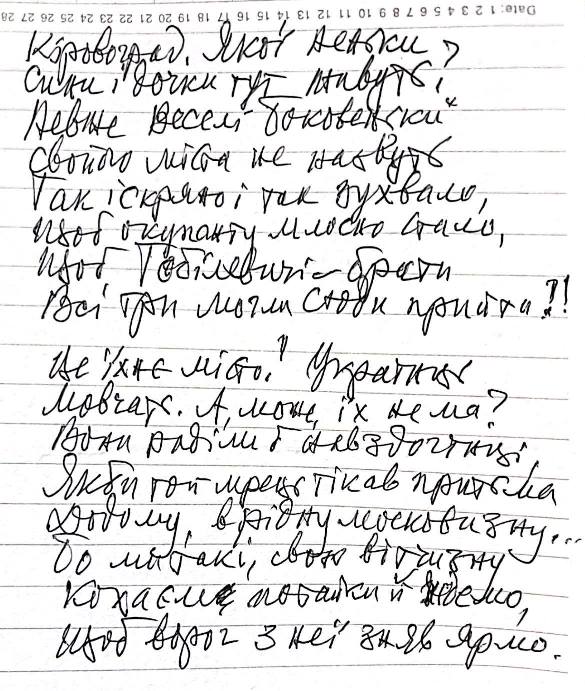 Date: 1 2 3 4 5 6 7 8 9 10 11 12 13 14 15 16 17 18 19 20 21 22 23 24 25 26 27 28
Кіровоград. Якої неньки
Сини і дочки тут живуть?
Невже веселі боковеньки
Свойого міста не назвуть
Так іскряно і так зухвало,
Щоб окупанту млосно стало,
Щоб Тобілевичі – брати
Всі три могли сюди прийти?!!
Це їхнє місто! Українці
Мовчать. А, може, їх нема?
Вони раділи б навздогінці,
Якби той мрець тікав притьма
Додому, в рідну московизну...
Бо ми такі, свою вітчизну
Кохаєме потайки й ждемо,
Щоб ворог з неї зняв ярмо.